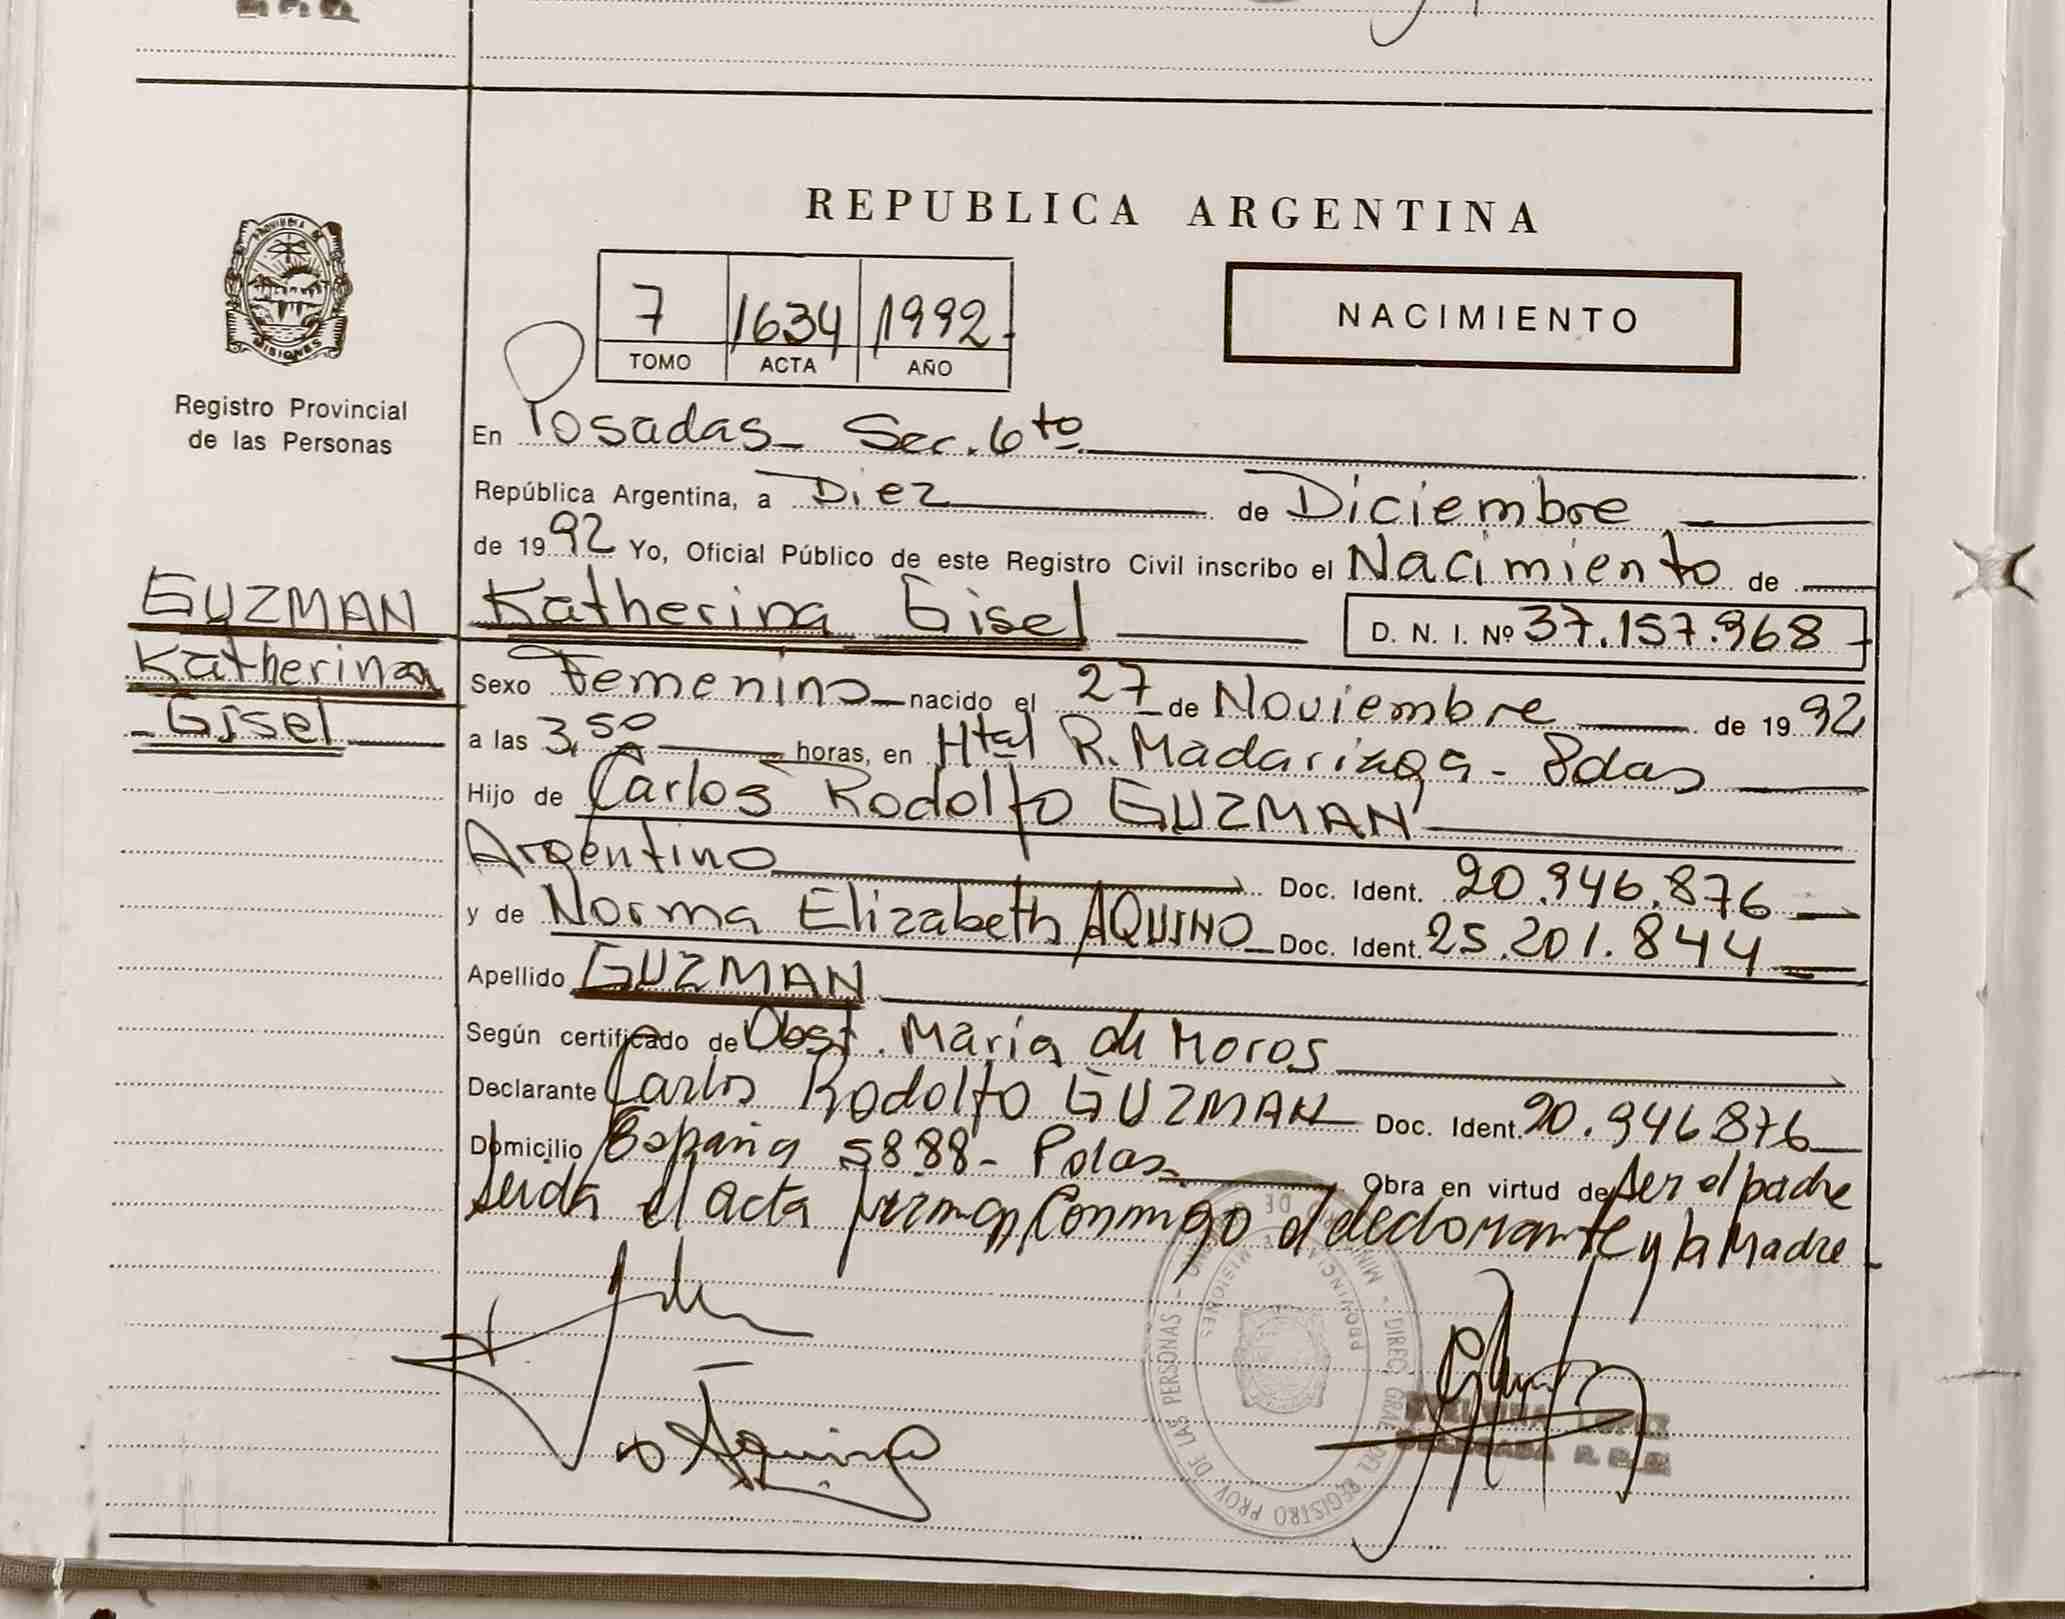 REPUBLICA ARGENTINA
PROVINCIA DE
MISIONES
Registro Provincial
de las Personas
7 1634 1992
TOMO ACTA AÑO
NACIMIENTO
En Posadas - Sec. 6to
República Argentina, a Diez de Diciembre
de 1992 Yo, Oficial Público de este Registro Civil inscribo el Nacimiento de
GUZMAN
Katherina
- Gisel
Katherina Gisel D. N. I. Nº 37.157.968 -
Sexo Femenino nacido el 27 de Noviembre de 1992
a las 3,50 horas, en Htal R. Madariaga - Pdas
Hijo de Carlos Rodolfo GUZMAN
Argentino Doc. Ident. 20.946.876
y de Norma Elizabeth AQUINO Doc. Ident. 25.201.844
Apellido GUZMAN
Según certificado de Obst. Maria de Moros
Declarante Carlos Rodolfo GUZMAN Doc. Ident. 20.946.876
Domicilio España 5888 - Pdas Obra en virtud de Ser el padre
Leida el acta firman Conmigo el declarante y la Madre -
Aquino
REGISTRO PROV. DE LAS PERSONAS
PROVINCIA DE MISIONES
LOPEZ
DELEGADA R. P. P.